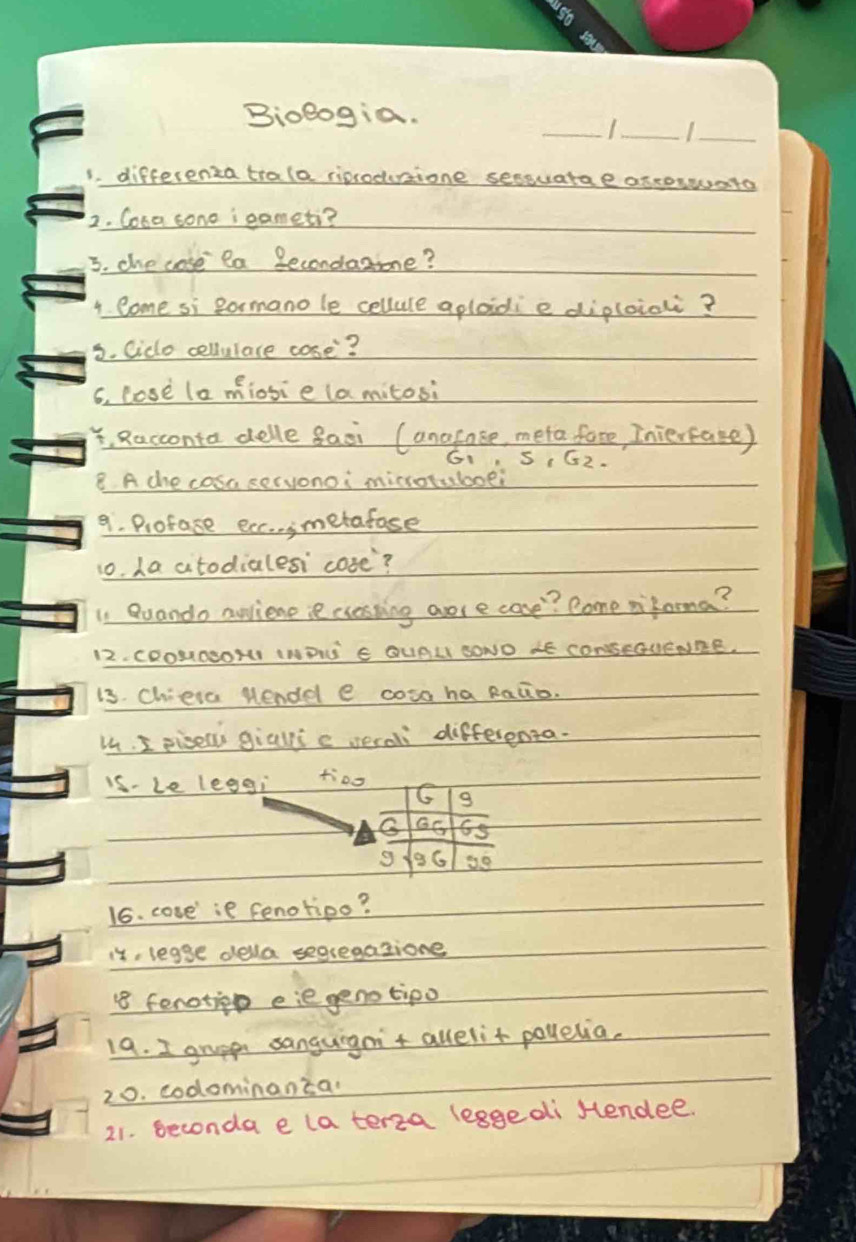 Biologia.
__/__/__
1. differenza tra la riproduzione sessuata e assessuata
2. Cosa sono i gameti?
3. che cose' la fecondazione?
4. Come si formano le cellule aploidi e diploidi?
5. Ciclo cellulare cose'?
6. Cosè la meiosi e la mitosi
7. Racconta delle fasi (anafase, metafase, Interfase)
G1, S, G2.
8. A che cosa servono i microtuboli
9. Profase ecc..; metafase
10. La citodialesi cose'?
11. Quando avviene il crossing over e cose'? Come si forma?
12. CROMOSOMI IN PIÙ E QUALI SONO LE CONSEGUENZE.
13. Chi era Mendel e cosa ha fatto.
14. I piselli gialli e verdi differenza.
15. Le leggi tipo
G g
G GG Gg
g gG gg
16. cose' il fenotipo?
17. legge della segregazione
18 fenotipo e il genotipo
19. I gruppi sanguigni + alleli +
20. codominanza.
21. Seconda e la terza legge di Mendel.